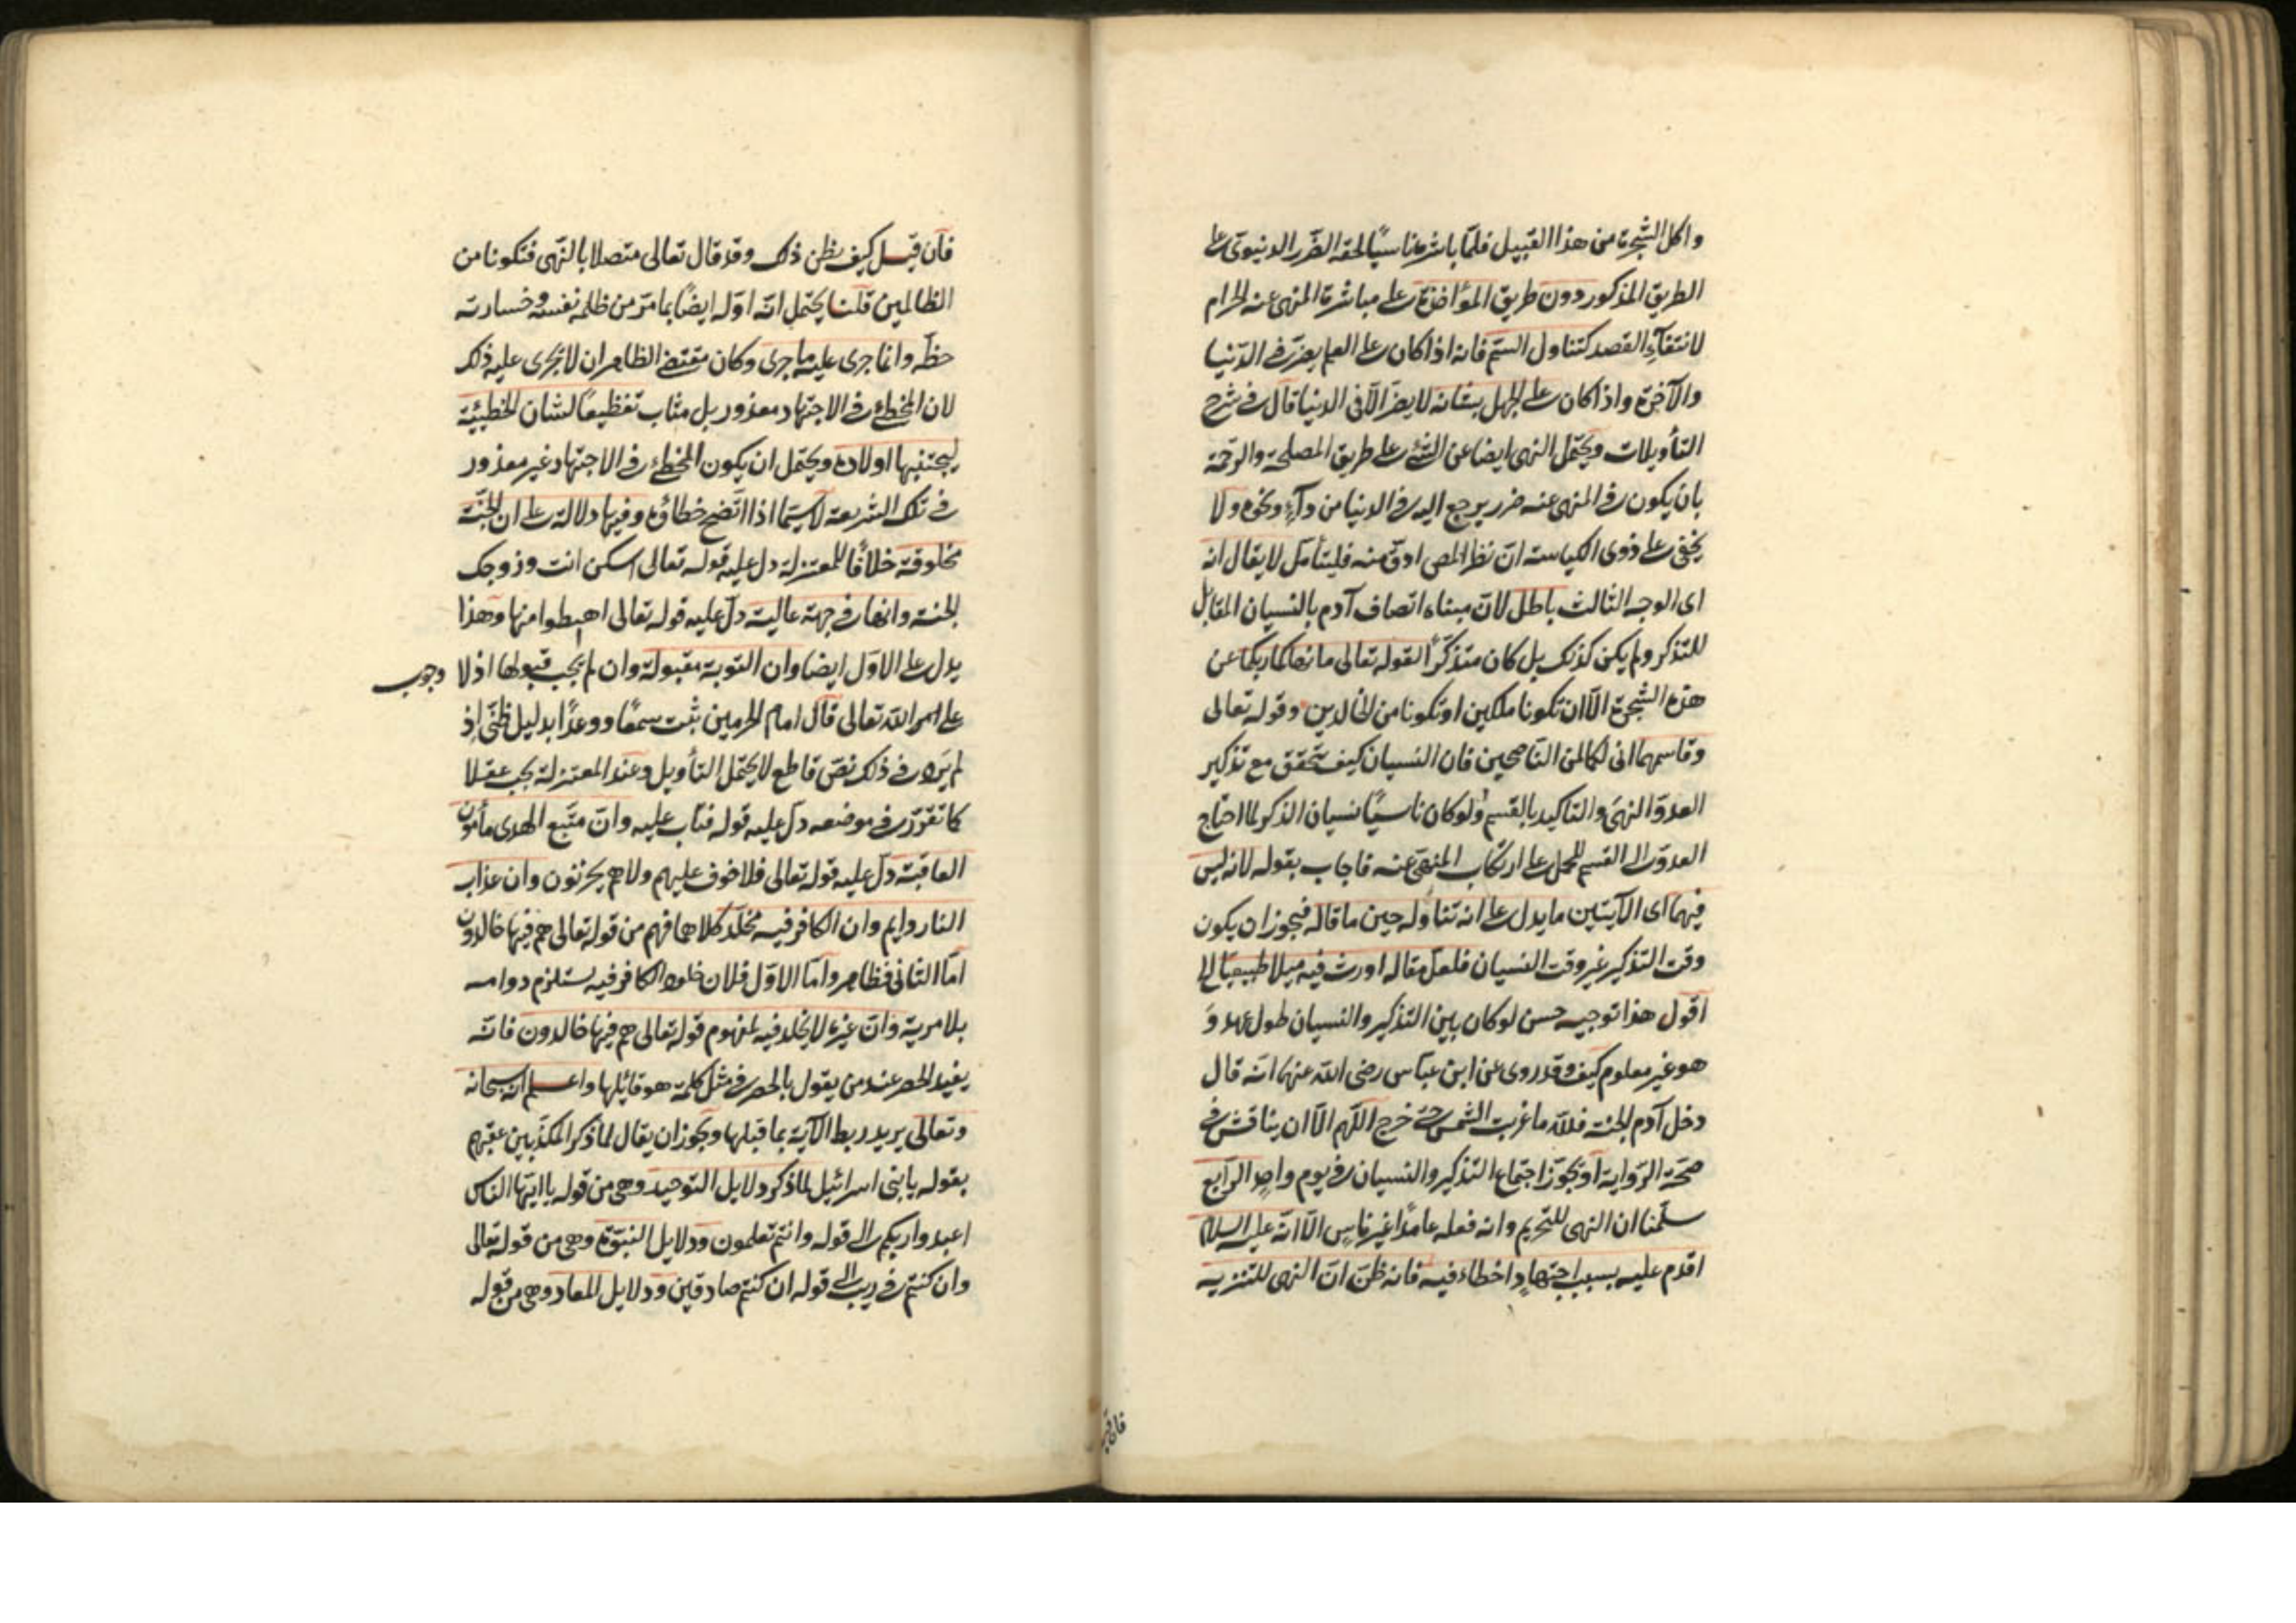 واكل الشجرة من هذا القبيل فلما باشرها ناسيًا لحقه الضرر الدنيوي على
الطريق المذكور دون طريق المؤاخذة على مباشرة المنهى عنه الحرام
لانتفآء القصد كتناول السم فانه اذا كان على العلم يضر في الدنيا
والآخرة واذا كان على الجهل بشانه لا يضر الا فى الدنيا قال في شرح
التأويلات ويحتمل النهى ايضا عن الشئ على طريق المصلحة والرحمة
بان يكون في المنهى عنه ضرر يرجع اليه في الدنيا من دآء ونحوه ولا
يخفى على ذوى الكياسة ان نظر المص ادق منه فليتأمل لا يقال انه
اى الوجه الثالث باطل لان مبناه اتصاف آدم بالنسيان المقابل
للتذكر ولم يكن كذلك بل كان متذكرًا لقوله تعالى ما نهاكما ربكما عن
هذه الشجرة الا ان تكونا ملكين او تكونا من الخالدين وقوله تعالى
وقاسمهما انى لكما لمن الناصحين فان النسيان كيف يتحقق مع تذكير
العدو النهى والتاكيد بالقسم ولو كان ناسيًا نسيان الذكر لما احتاج
العدو الى القسم للحمل على ارتكاب المنهى عنه فاجاب بقوله لانه ليس
فيهما اى الآيتين ما يدل على انه تناوله حين ما قاله فيجوز ان يكون
وقت التذكير غير وقت النسيان فلعل مقاله اورث فيه ميلا طبيعيا الخ
اقول هذا توجيه حسن لو كان بين التذكير والنسيان طول عهد و
هو غير معلوم كيف وقد روى عن ابن عباس رضى الله عنهما انه قال
دخل آدم الجنة فلله ما غربت الشمس حتى خرج اللهم الا ان يناقش في
صحة الرواية او يجوز اجتماع التذكير والنسيان في يوم واحد الرابع
سلمنا ان النهى للتحريم وانه فعله عامدًا غير ناس الا انه عليه السلام
اقدم عليه بسبب اجتهاد اخطاء فيه فانه ظن ان النهى للتنزيه
فان قيل
فان قيل كيف يظن ذلك وقد قال تعالى متصلا بالنهى فتكونا من
الظالمين قلنا يحتمل انه اوله ايضا بما مر من ظلمه نفسه وخسارته
حظه وانما جرى عليه ما جرى وكان مقتضى الظاهر ان لا يجرى عليه ذلك
لان المخطئ في الاجتهاد معذور بل مثاب تفظيعًا لشان الخطيئة
ليجتنبها اولاده ويحتمل ان يكون المخطئ في الاجتهاد غير معذور
في تلك الشريعة لا سيما اذا اتضح خطاؤه وفيها دلالة على ان الجنة
مخلوقة خلافًا للمعتزلة دل عليه قوله تعالى اسكن انت وزوجك
الجنة وانها في جهة عالية دل عليه قوله تعالى اهبطوا منها وهذا
يدل على الاول ايضا وان التوبة مقبولة وان لم يجب قبولها اذ لا وجوب
على امر الله تعالى قال امام الحرمين ثبت سمعًا ووعدًا بدليل ظنى اذ
لم يرد في ذلك نص قاطع لا يحتمل التأويل وعند المعتزلة يجب عقلا
كما تقرر في موضعه دل عليه قوله فتاب عليه وان متبع الهدى مأمون
العاقبة دل عليه قوله تعالى فلا خوف عليهم ولا هم يحزنون وان عذاب
النار دايم وان الكافر فيه مخلد كلاهما فهم من قوله تعالى هم فيها خالدون
اما الثانى فظاهر واما الاول فلان خلود الكافر فيه يستلزم دوامه
بلا مرية وان غيره لا يخلد فيه بمفهوم قوله تعالى هم فيها خالدون فانه
يفيد الحصر عند من يقول بالحصر في مثل كلمة هو قائلها واعلم انه سبحانه
وتعالى يريد ربط الآية بما قبلها ويجوز ان يقال لما ذكر المكذبين عقبهم
بقوله يا بنى اسرائيل لما ذكر دلايل التوحيد وهى من قوله يا ايها الناس
اعبدوا ربكم الى قوله وانتم تعلمون ودلايل النبوة وهى من قوله تعالى
وان كنتم في ريب الى قوله ان كنتم صادقين ودلايل المعاد وهى من قوله